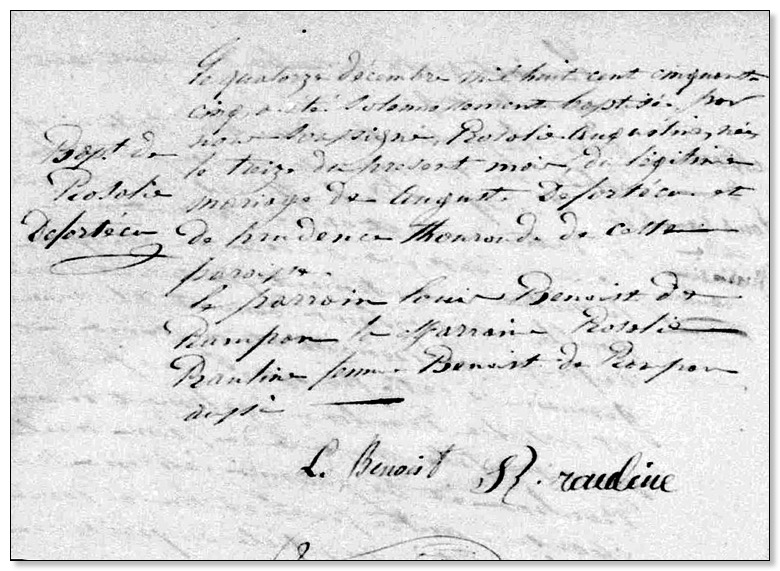 Le quatorze décembre mil huit cent cinquante
cinq, a été solennellement baptisée, par
nous soussigné, Rosalie Augustine, née
le treize du présent mois, du légitime
mariage de Auguste Desortéca et
de prudence Thouroude de cette
paroisse.
Le parrain Louis Benoist de
Rampan la Marraine Rosalie
Rauline femme Benoist de Rampan
aussi
Bapt. de
Rosalie
Desortéca
L. Benoist R. rauline